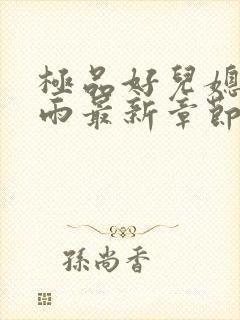 極品好兒媳
雨最新章節
孫尚香